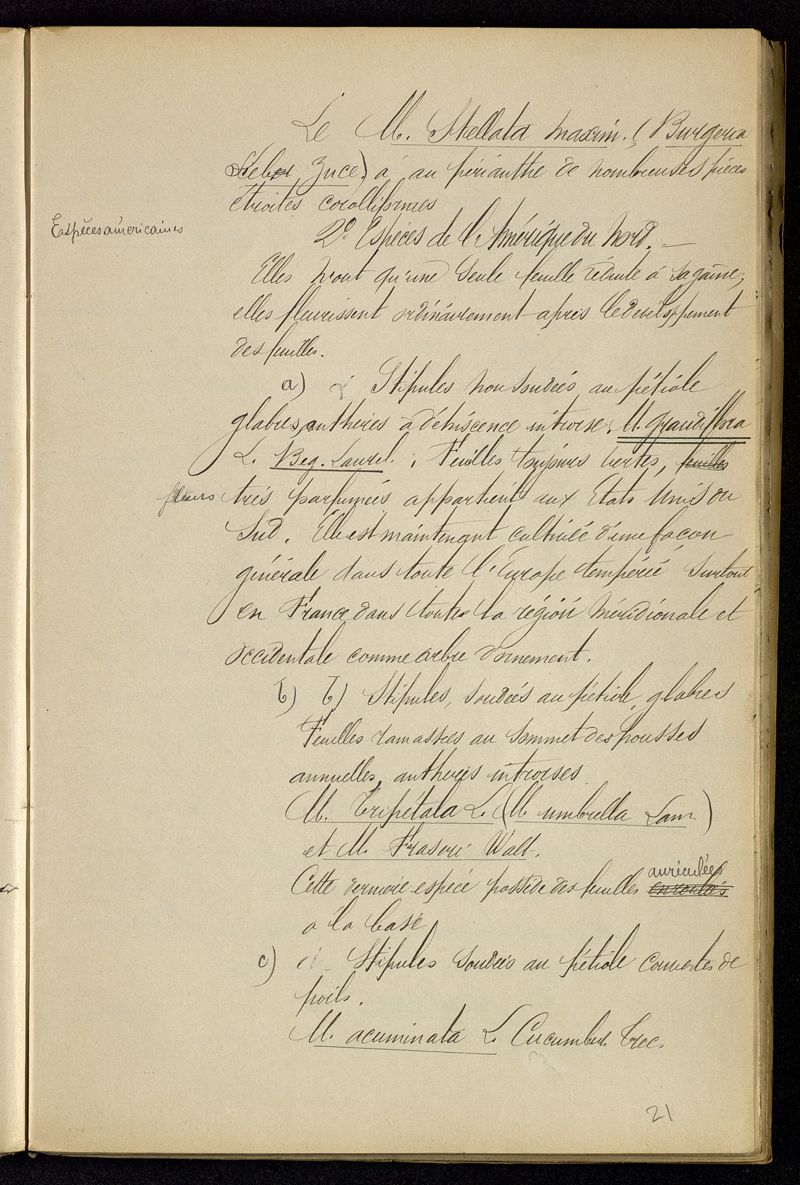 Le M. Stellata maxim. (Burgeria
Sieb et Zucc.) a au périanthe de nombreuses pièces
étroites corolliformes
Espèces américaines
2º Espèces de l'Amérique du Nord. —
Elles n'ont qu'une seule feuille réduite à sa gaîne,
elles fleurissent ordinairement après le developpement
des feuilles.
a) Stipules non soudées au pétiole
glabres, anthères à déhiscence introrse. M. grandiflora
L. Beg. Laurel. Feuilles toujours vertes, feuilles
fleurs très parfumées appartient aux Etats Unis du
Sud. Elle est maintenant cultivée d'une façon
générale dans toute l'Europe tempérée surtout
en France dans toute la région méridionale et
occidentale comme arbre d'ornement.
b) b) Stipules, soudées au pétiole, glabres
Feuilles ramassées au sommet des pousses
annuelles, anthères introrses
M. Tripétala L. (M umbrella Lam)
et M. Fraseri Walt.
Cette dernière espèce possède des feuilles auriculées
a la base
c) Stipules soudées au pétiole couvertes de
poils.
M. acuminata L. Cucumber tree.
21